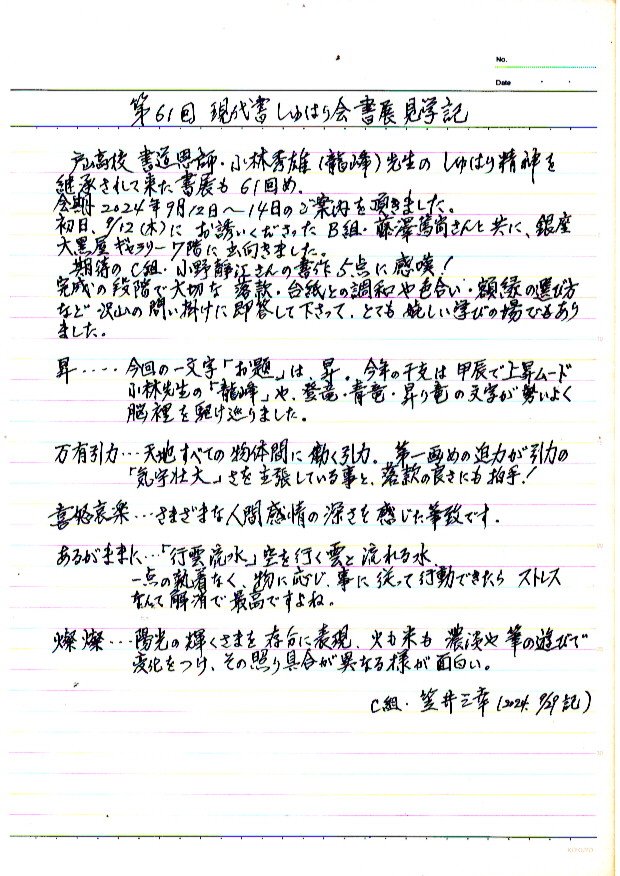 No.
Date
第61回 現代書しゅはり会書展見学記
戸山高校 書道恩師・小林秀雄(龍峰)先生の しゅはり精神を
継承されて来た書展も 61回め。
会期 2024年9月12日～14日のご案内を頂きました。
初日、9/12(木)に お誘いくださった B組・藤澤篤尚さんと共に、銀座
大黒屋ギャラリー7階に出向きました。
期待の C組・小野静江さんの書作5点に感嘆!
完成の段階で大切な 落款・台紙との調和や色合い・額縁の選び方
など 沢山の問い掛けに即答して下さって、とても嬉しい学びの場でもあり
ました。
昇・・・・ 今回の一文字「お題」は、昇。今年の干支は 甲辰で上昇ムード
小林先生の「龍峰」や、登竜・青竜・昇り竜の文字が勢いよく
脳裡を駆け巡りました。
万有引力・・・天地すべての物体間に働く引力。第一画めの迫力が引力の
「気宇壮大」さを主張している事と、落款の良さにも拍手!
喜怒哀楽・・・さまざまな人間感情の深さを感じた筆致です。
あるがままに・・・「行雲流水」空を行く雲と流れる水、
一点の執着なく、物に応じ、事に従って行動できたら ストレス
なんて解消で最高ですよね。
燦燦・・・陽光の輝くさまを存分に表現、火も米も 濃淡や筆の遊びで
変化をつけ、その照り具合が異なる様が面白い。
C組・笠井三幸(2024. 9/29記)
KOKUYO